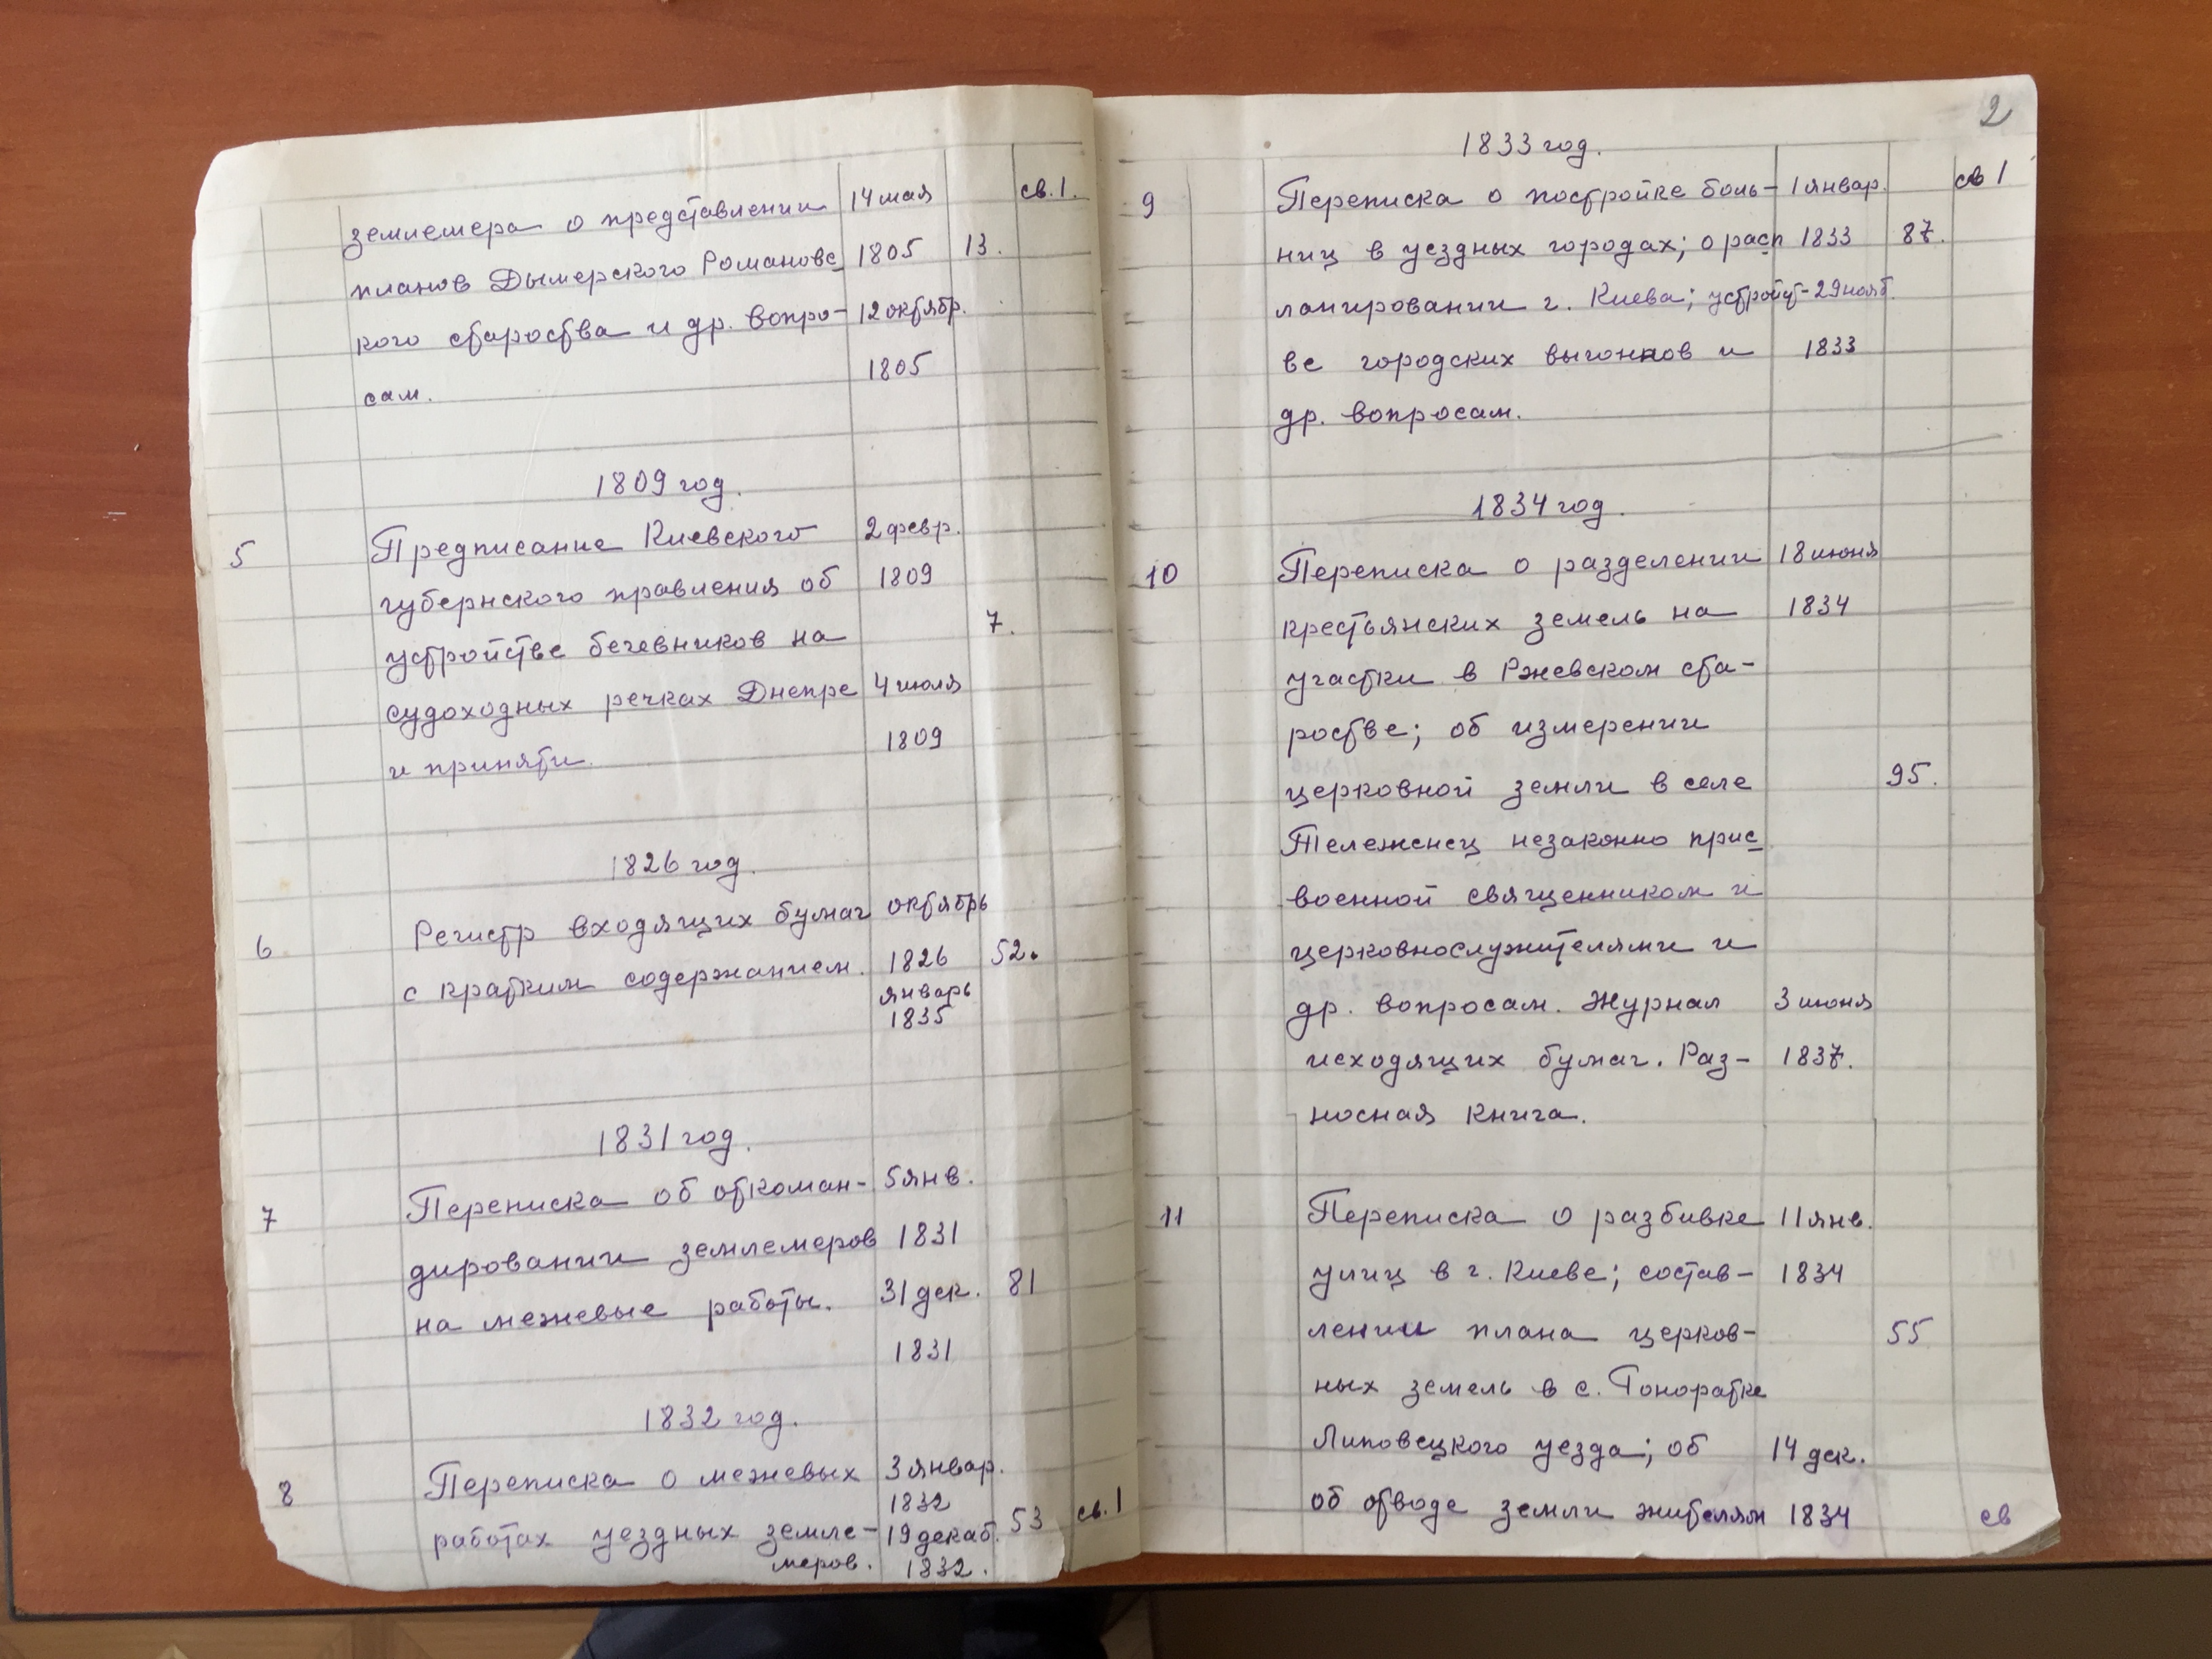 землемера о представлении 14 мая св. 1.
планов Дымерского Романовс 1805 13.
кого староства и др. вопро- 12 октябр.
сам. 1805
1809 год.
5 Предписание Киевского 2 февр.
губернского правления об 1809
устройстве бечевников на 7.
судоходных речках Днепре 4 июля
и приняти. 1809
1826 год.
6 Регистр входящих бумаг октябрь
с кратким содержанием. 1826 52.
январь
1835
1831 год.
7 Переписка об откоман- 5 янв.
дировании землемеров 1831
на межевые работы. 31 дек. 81
1831
1832 год.
8 Переписка о межевых 3 январ.
1832
работах уездных земле- 19 декаб. 53 св. 1
меров. 1832.
2
1833 год.
9 Переписка о постройке боль- 1 январ. св 1
ниц в уездных городах; о расп 1833 87.
ланировании г. Киева; устройст- 29 нояб.
ве городских выгонков и 1833
др. вопросам.
1834 год.
10 Переписка о разделении 18 июня
крестьянских земель на 1834
участки в Ржевском ста-
ростве; об измерении
церковной земли в селе 95.
Тележенец незаконно прис
военной священником и
церковнослужителями и
др. вопросам. Журнал 3 июня
исходящих бумаг. Раз- 1837.
носная книга.
11 Переписка о разбивке 11 янв.
улиц в г. Киеве; состав- 1834
лении плана церков- 55
ных земель в с. Гоноратке
Липовецкого уезда; об 14 дек.
об отводе земли жителям 1834 св